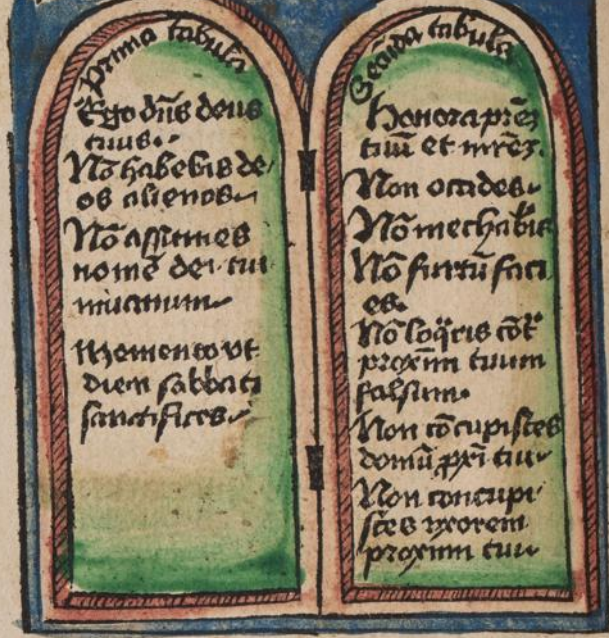 Prima tabula
Ego dn̄s deus
tuus.
Nō habebis de/
os alienos
Nō assumes
nomē dei tui
inuanum
Memento vt
diem sabbati
sanctifices
Secūda tabula
Honora prēꝫ
tuū et mrēꝫ.
Non occides
Nō mechabis
Nō furtū faci
es.
Nō loq̄ris cōt̄
proximū tuum
falsum.
Non cōcupisces
domū ꝓxī tui
Non concupi
sces vxorem
proximi tui